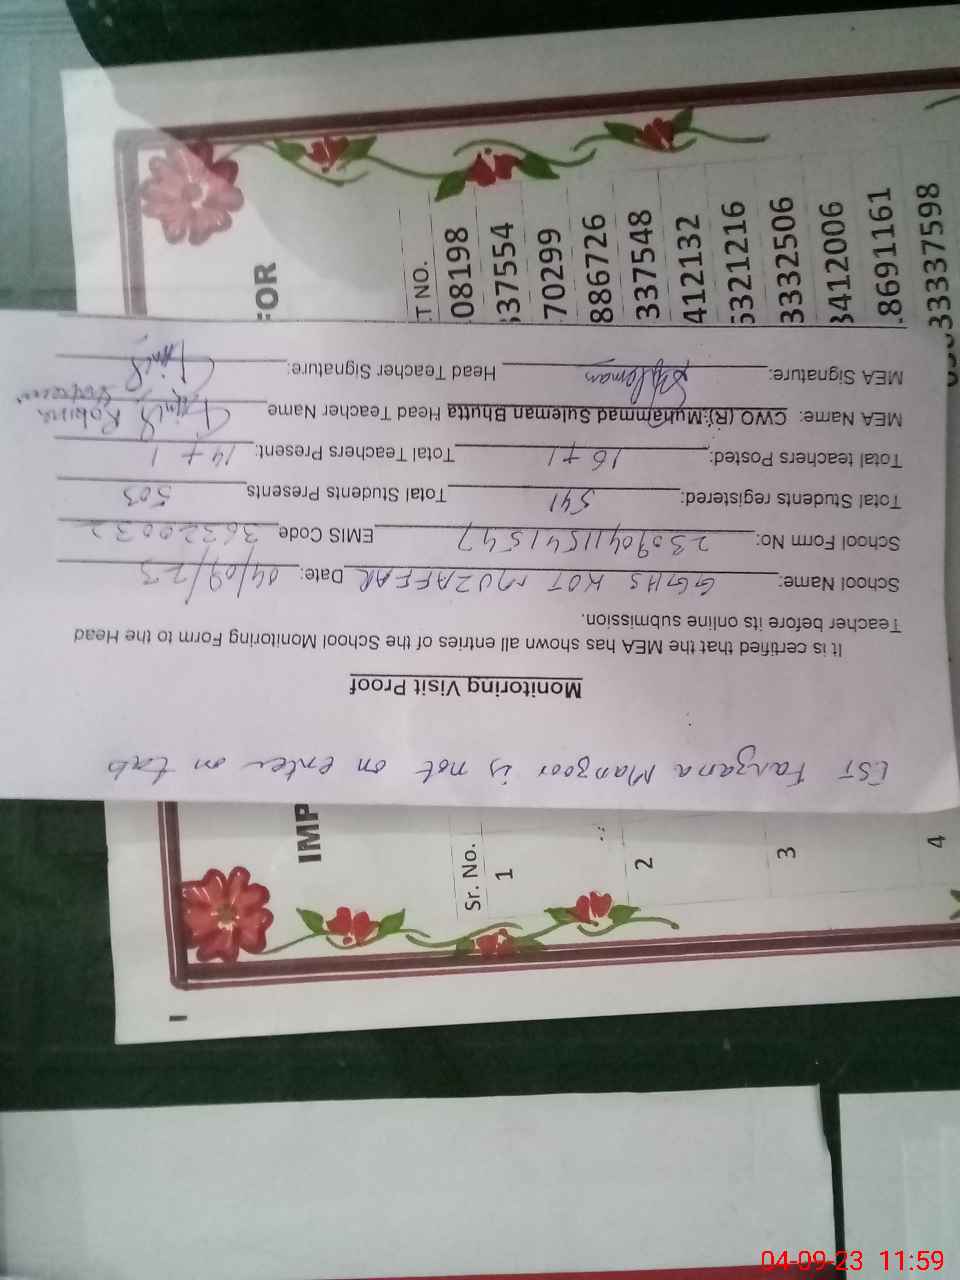 EST Farzana Manzoor is not on enter on tab
Monitoring Visit Proof
It is certified that the MEA has shown all entries of the School Monitoring Form to the Head
Teacher before its online submission.
School Name: GGHS KOT MUZAFFAR Date: 04/09/23
School Form No: 2309041154 1547 EMIS Code 36320032
Total Students registered: 541 Total Students Presents 503
Total teachers Posted: 16+1 Total Teachers Present: 14+1
MEA Name: CWO (R) Muhammad Suleman Bhutta Head Teacher Name Robina
MEA Signature: Head Teacher Signature:
IMP
FOR
Sr. No.
T NO.
1
08198
337554
2
70299
886726
337548
3
412132
5321216
3332506
4
3412006
8691161
33337598
04-09-23 11:59